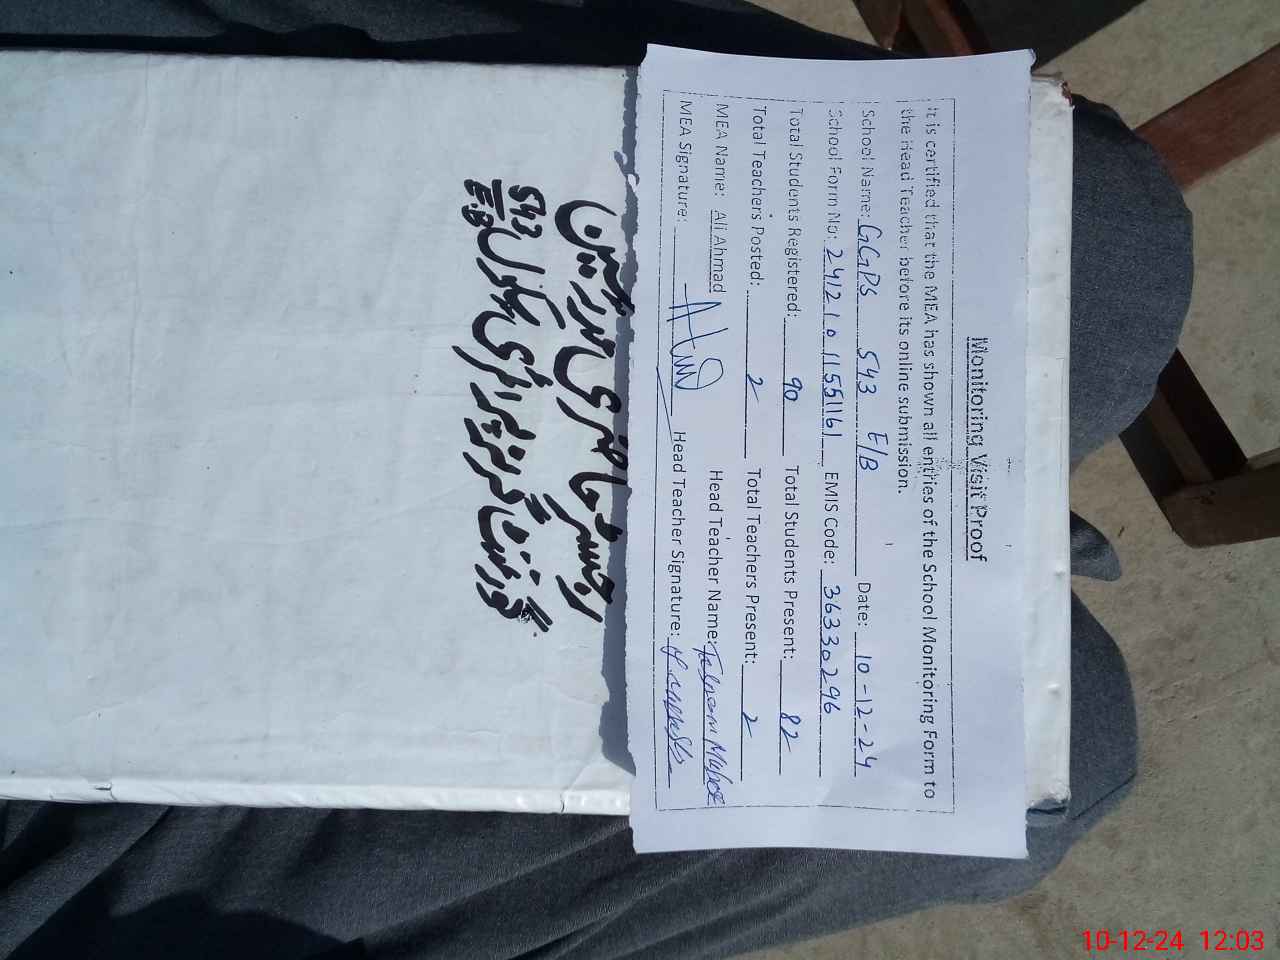 Monitoring Visit Proof
It is certified that the MEA has shown all entries of the School Monitoring Form to
the Head Teacher before its online submission.
School Name: GGPS 543 E/B Date: 10-12-24
School Form No: 24121011551161 EMIS Code: 36330296
Total Students Registered: 90 Total Students Present: 82
Total Teachers Posted: 2 Total Teachers Present: 2
MEA Name: Ali Ahmad Head Teacher Name:
MEA Signature: Head Teacher Signature:
رجسٹر حاضری مدرسین
گورنمنٹ گرلز پرائمری سکول 543 E.B
10-12-24 12:03